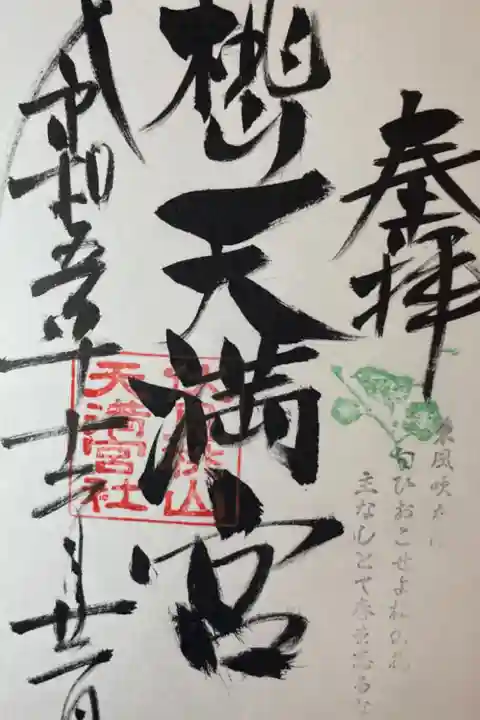 奉拝
東風吹かば
匂ひおこせよ梅の花
主なしとて春を忘るな
天満宮
山
天満宮社
令和五年